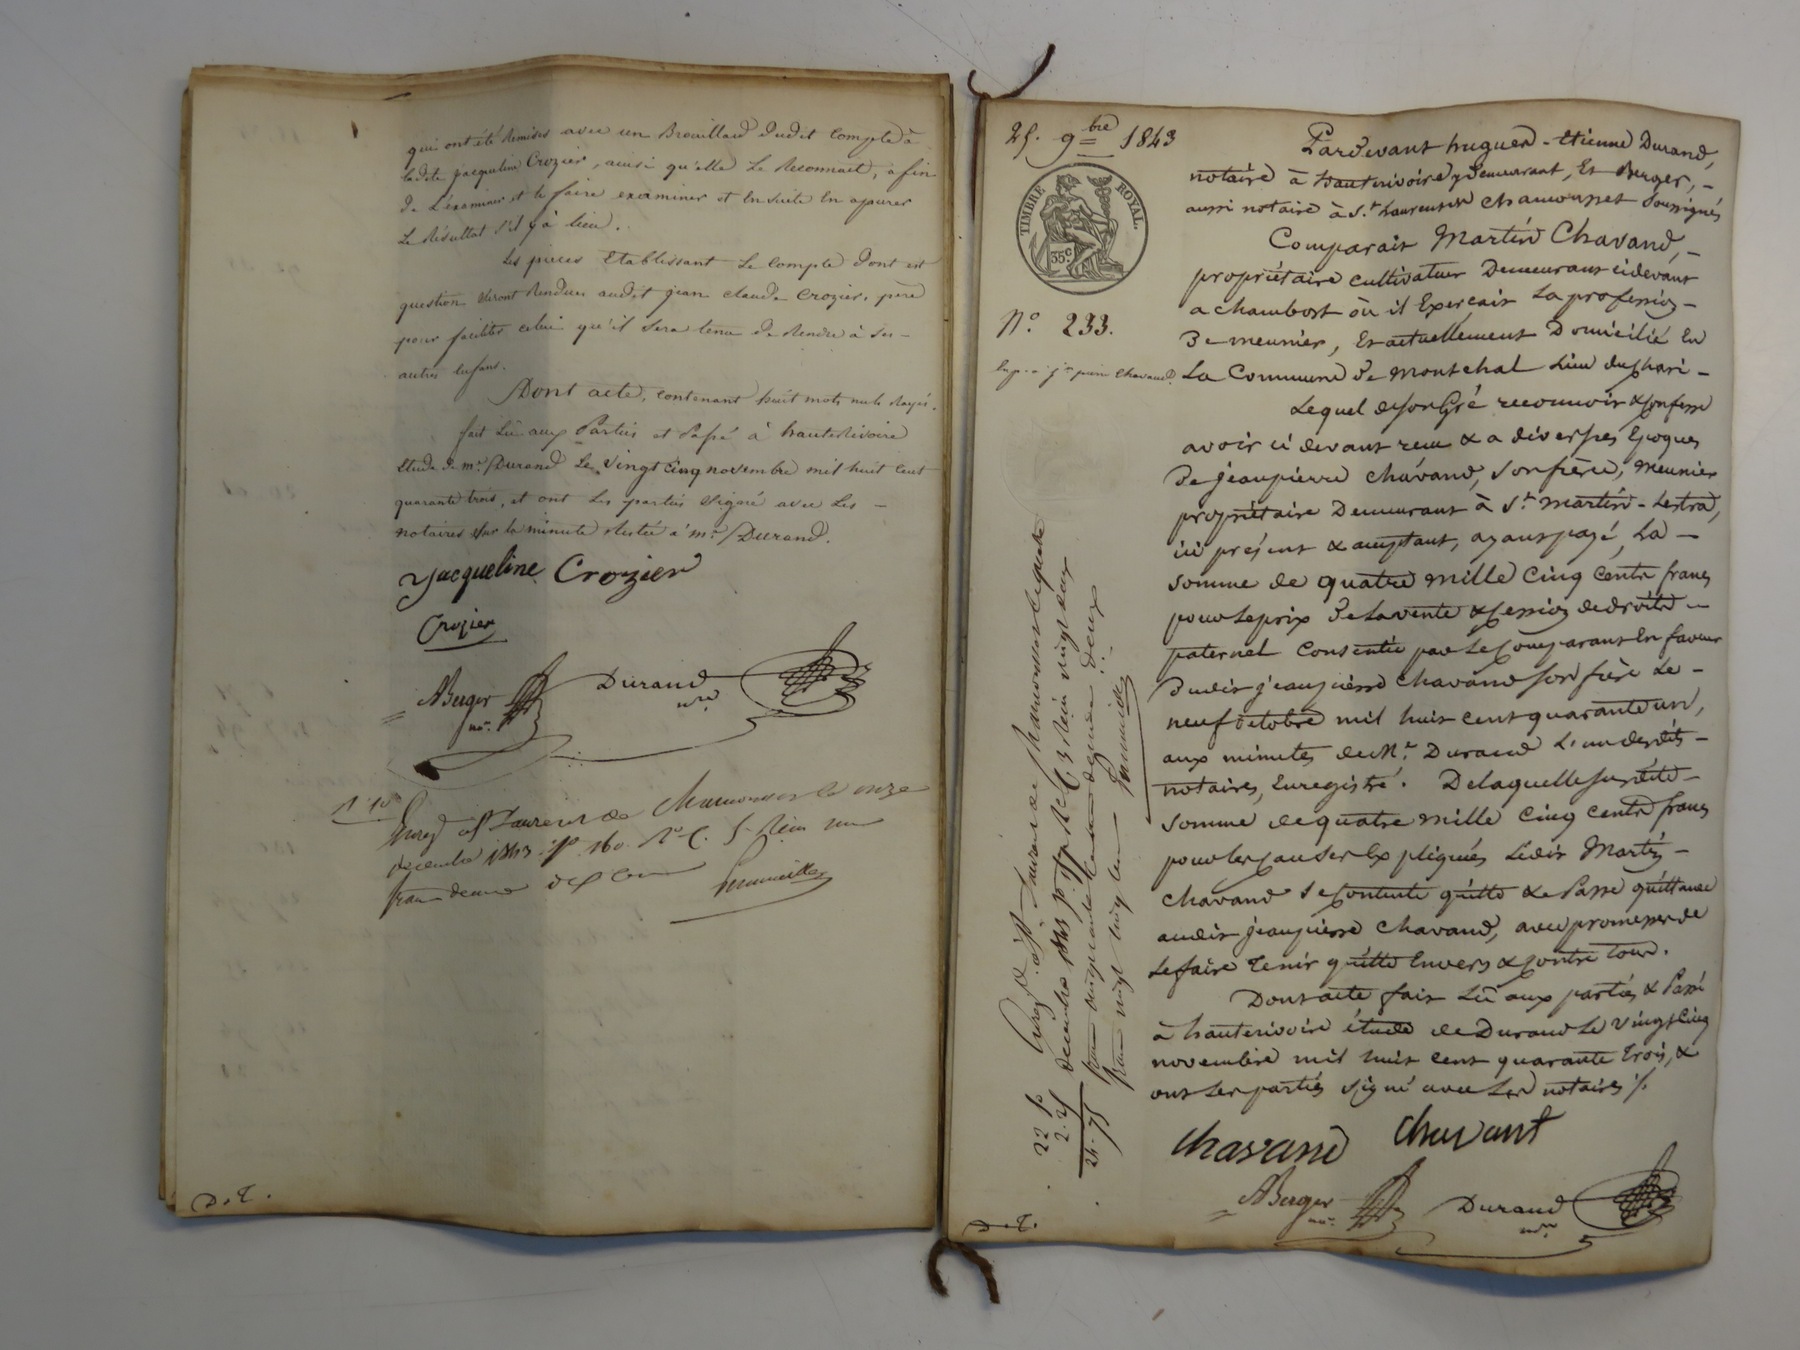 qui ont été Remises avec un Brouillard dudit Compte à
ladite jacqueline Crozier, ainsi qu'elle Le Reconnait, afin
de L'examiner et le faire examiner et Ensuite En apurer
Le Résultat s'il y à lieu.
Les pièces Etablissant Le Compte dont est
question Seront Rendues audit jean claude Crozier, père
pour faciliter celui qu'il Sera tenu de Rendre à Ses
autres Enfans.
Dont acte, contenant huit mots nuls Rayés.
fait Lû aux Parties et Passé à hauteRivoire
Etude de me. Durand Le Vingt Cinq novembre mil huit Cent
quarante trois, et ont Les parties Signé avec Les
notaires Sur la minute Restée à me. Durand.
Jacqueline Crozier
Crozier
ABerger
Durand
nre.
nre.
Enreg à St Laurent de Chamousset le onze
décembre 1843 fo. 160. Ro C. 5. Reçu un
franc dixième dix Cent
D.E.
25. 9bre 1843
TIMBRE ROYAL.
35c.
No. 233.
Exp. à jn pierre Chavand.
Pardevant hugues-Etienne Durand,
notaire à hauterivoire y Demeurant, Et Berger,
aussi notaire à St. Laurent de chamousset Soussignés
Comparait Martin Chavand,
propriétaire cultivateur Demeurant ci devant
a chambost où il Exerçait La profession
De meunier, Et actuellement Domicilié En
La Commune De montchal Lieu du
Lequel de son Gré reconnoit & Confesse
avoir ci devant reçu & a diverses Epoques
De jeanpierre chavand, son frère, meunier
propriétaire Demeurant à St. martin-Lestra,
ici présent & acceptant, ayant payé, La
somme de quatre mille Cinq Cents francs
pour Le prix De La vente & Cession de droits
paternel Consentie par Le Comparant En faveur
Dudit jeanpierre Chavand son frère Le
neuf octobre mil huit cent quarante un,
aux minutes de Me. Durand L'un desdits
notaires, Enregistré. De laquelle susdite
somme de quatre mille Cinq Cents francs
pour Les Causes Expliquées Ledit Martin
Chavand Se Contente quitte & Passe quittance
audit jeanpierre Chavand, avec promesse de
Le faire Tenir quitte Envers & Contre Tous.
Dont acte fait Lû aux parties & Passé
à hauterivoire étude de Durand Le Vingt Cinq
novembre mil huit cent quarante Trois, &
ont Les parties signé avec Les notaires /.
Chavand
Chavant
ABerger
Durand
nre.
nre.
Enregé. à St. Laurent de Chamousset le quatre
décembre 1843 fo. 157 Ro C 3 Reçu vingt deux
francs cinquante Cent dixième deux
francs vingt Cinq Cent
22 50
2. 25
24. 75
D.E.